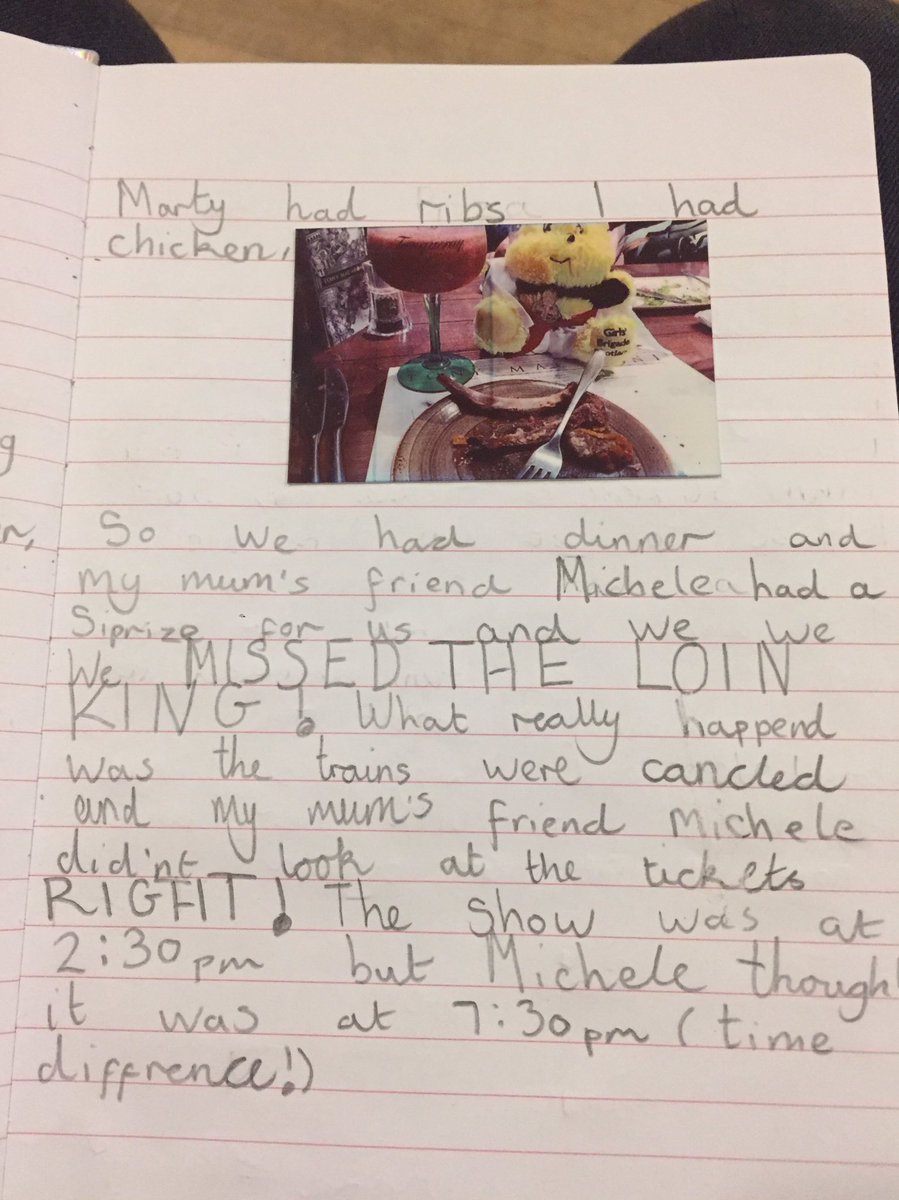 Marty had ribs I had
chicken.
Girls'
Brigade
So we had dinner and
my mum's friend Michele had a
Siprize for us and we we
We MISSED THE LOIN
KING! What really happend
was the trains were cancled
and my mum's friend Michele
did'nt look at the tickets
RIGHT! The show was at
2:30pm but Michele though
it was at 7:30pm (time
diffrence!)